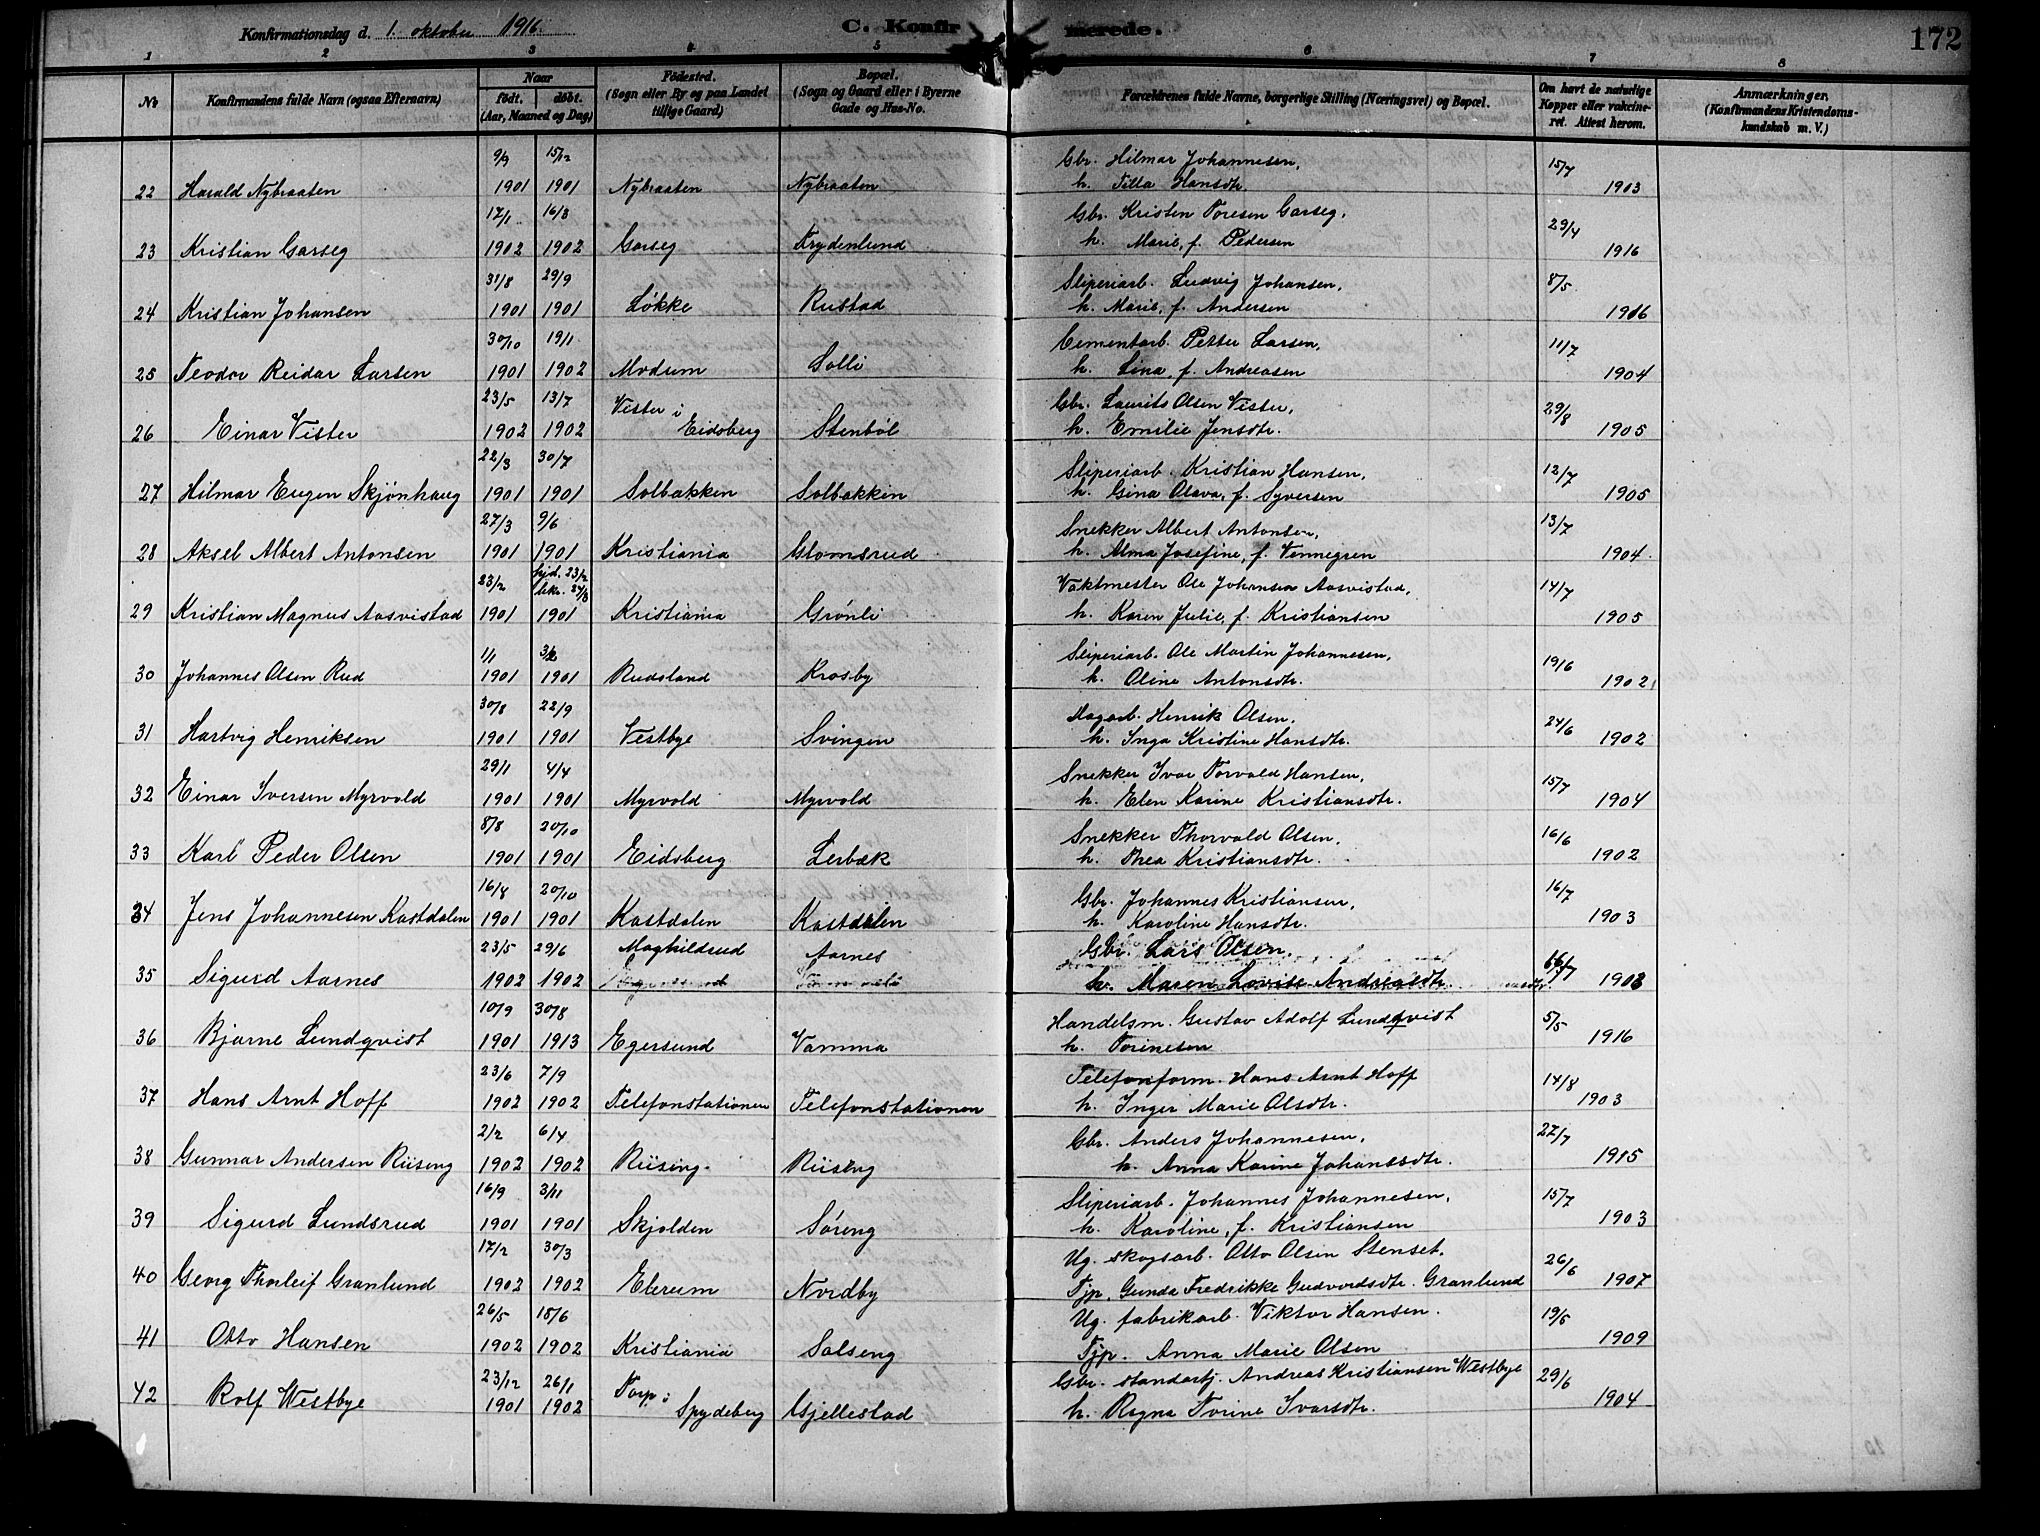 Konfirmationsdag d. 1. oktober 1916.
C. Konfirmerede.
172
1 2 3 4 5 6 7 8
No
Konfirmandens fulde Navn (ogsaa Efternavn)
Naar
født. døbt.
(Aar, Maaned og Dag)
Fødested.
(Sogn eller By og paa Landet
tillige Gaard)
Bopæl.
(Sogn og Gaard eller i Byerne
Gade og Hus-No.
Forældrenes fulde Navne, borgerlige Stilling (Næringsvei) og Bopæl.
Om havt de naturlige
Kopper eller vakcine-
ret. Attest herom.
Anmærkninger.
(Konfirmandens Kristendoms-
kundskab m. V.)
9/9 15/12 Gbr. Hilmar Johannesen, 15/7
22 Harald Nybraaten 1901 1901 Nybraaten Nybraaten h. Tilla Hansdtr. 1903
17/1 16/3 Gbr. Kristen Toresen Garseg, 29/4
23 Kristian Garseg 1902 1902 Garseg Frydenlund h. Marie, f. Pedersen 1916
31/8 29/9 Sliperiarb. Ludvig Johansen, 8/5
24 Kristian Johansen 1901 1901 Løkke Rustad h. Marie, f. Andersen 1916
30/10 19/1 Cementarb. Petter Larsen, 11/7
25 Teodor Reidar Larsen 1901 1902 Modum Solli h. Lina, f. Andreasen 1904
23/5 13/7 Vister i Gbr. Laurits Olsen Vister, 29/8
26 Einar Vister 1902 1902 Eidsberg Stenbøl h. Emilie Jensdtr. 1905
22/3 30/7 Sliperiarb. Kristian Hansen, 12/7
27 Hilmar Eugen Skjønhaug 1901 1901 Solbakken Solbakken h. Gina Olava, f. Syversen 1905
27/3 9/6 Snekker Albert Antonsen, 13/7
28 Aksel Albert Antonsen 1901 1901 Kristiania Glomsrud h. Alma Josefine, f. Vennegren 1904.
23/2 hjd. 23/2 Vaktmester Ole Johansen Aasvistad, 14/7
29 Kristian Magnus Aasvistad 1901 1901 Kristiania Grønli h. Karen Julie, f. Kristiansen 1905
1/1 Sliperiarb. Ole Martin Johannesen, 19/6
30 Johannes Olsen Rud 1901 1901 Rudsland Krosby h. Oline Antonsdtr. 1902
30/8 22/9 Dagarb. Henrik Olsen, 24/6
31 Hartvig Henriksen 1901 1901 Vestbye Svingen h. Inga Kristine Hansdtr. 1902
29/1 4/4 Snekker Ivar Torvald Hansen, 15/7
32 Einar Iversen Myrvold 1901 1901 Myrvold Myrvold h. Elen Karine Kristiansdtr. 1904
8/8 20/10 Snekker Thorvald Olsen, 16/6
33 Karl Peder Olsen 1901 1901 Eidsberg Lerbæk h. Thea Kristiansdtr. 1902
16/8 20/10 Gbr. Johannes Kristiansen, 16/7
34 Jens Johannesen Kastdalen 1901 1901 Kastdalen Kastdalen h. Karoline Hansdtr. 1903
23/5 29/6 Maghildrud Aarnes Gbr. Lars Olsen,
35 Sigurd Aarnes 1902 1902 h. Maren Lovise Andreasdtr. 1903
10/9 30/8 Handelsm. Gustav Adolf Lundqvist 5/5
36 Bjarne Lundqvist 1901 1913 Egersund Vamma h. Torinesen 1916
23/6 7/9 Telefonform. Hans Arnt Hoff 14/8
37 Hans Arnt Hoff 1902 1902 Telefonstationen Telefonstationen h. Inger Marie Olsdtr. 1903
2/2 6/4 Gbr. Anders Johannesen, 27/7
38 Gunnar Andersen Riiseng 1902 1902 Riising Riiseng h. Anna Karine Johansdtr. 1915
16/9 3/11 Sliperiarb. Johannes Johannesen, 15/7
39 Sigurd Lundsrud 1901 1901 Skjolden Søreng h. Karoline, f. Kristiansen 1903
17/2 30/3 Ug. skogsarb. Otto Olsen Stenset, 26/6
40 Georg Thorleif Granlund 1902 1902 Elverum Nordby Tjp. Gunda Fredrikke Gudvordsdtr. Granlund 1907
26/5 18/6 Ug. fabrikarb. Viktor Hansen. 19/6
41 Otto Hansen 1902 1902 Kristiania Solseng Tjp. Anna Marie Olsen 1909
23/12 26/1 Torp i Gbr. standartj. Andreas Kristiansen Westbye 29/6
42 Rolf Westbye 1901 1902 Spydeberg Gjellestad h. Ragna Torine Ivarsdtr. 1904